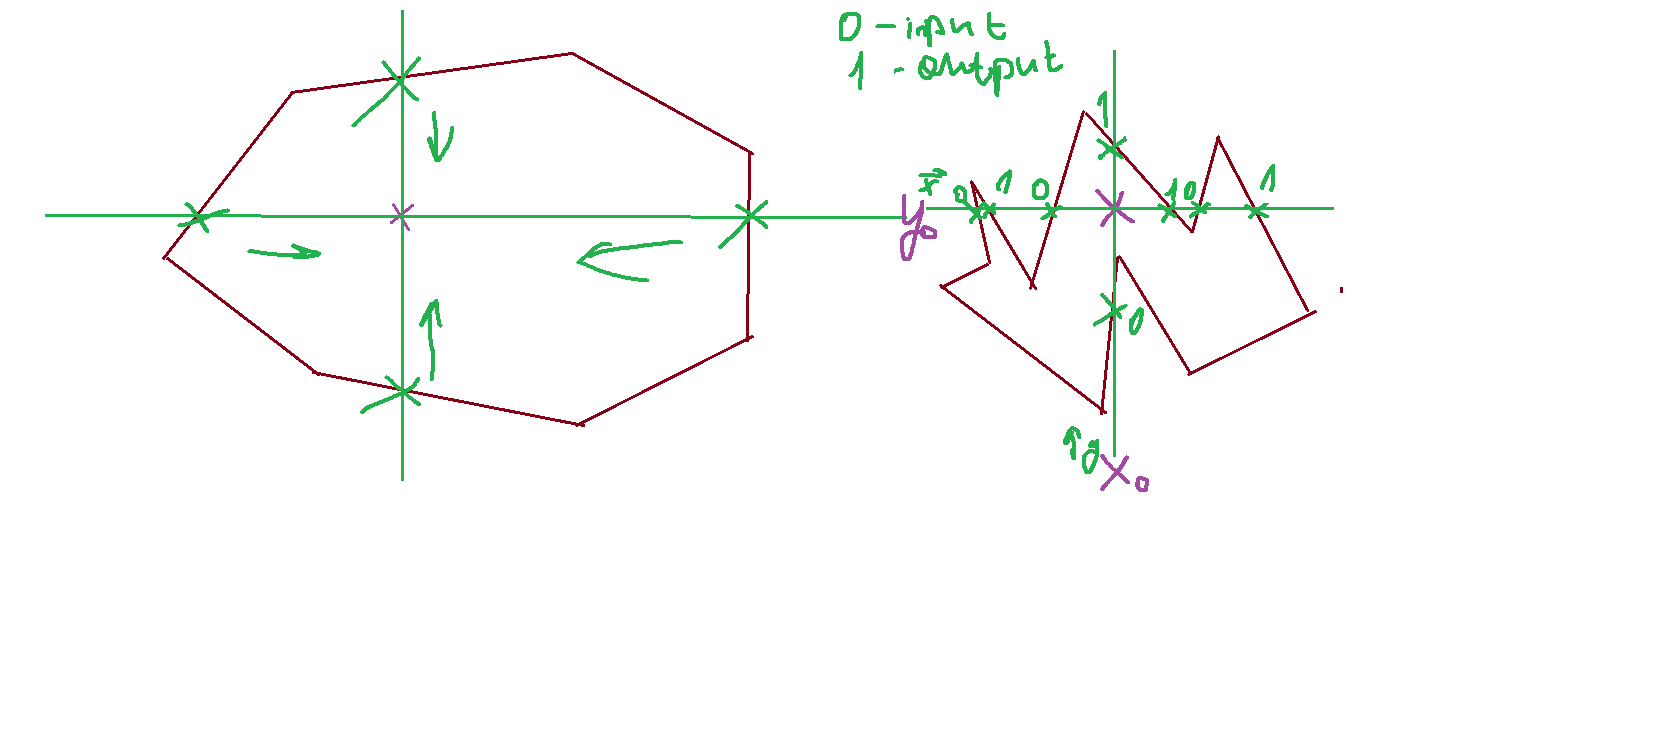 0 - input
1 - output
1
x 0 1 0 1 0 1
y₀
0
y
x₀